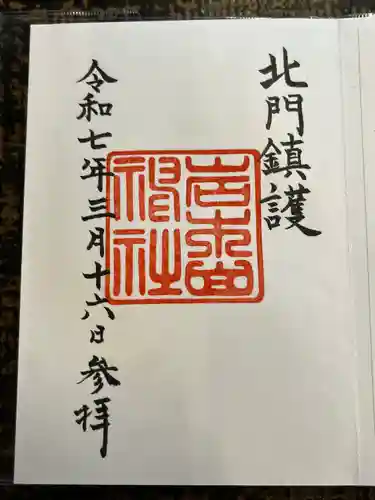 北門鎮護
神社
令和七年三月十六日参拝